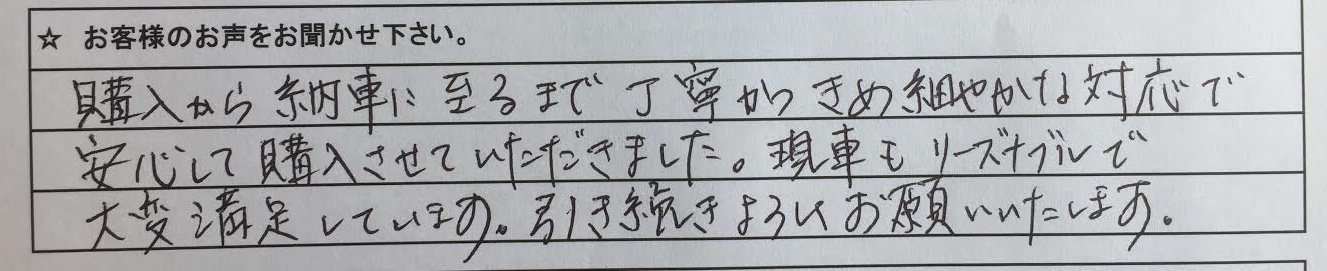 ☆ お客様のお声をお聞かせ下さい。
購入から納車に至るまで丁寧かつきめ細やかな対応で
安心して購入させていただきました。現車もリーズナブルで
大変満足しています。引き続きよろしくお願いいたします。